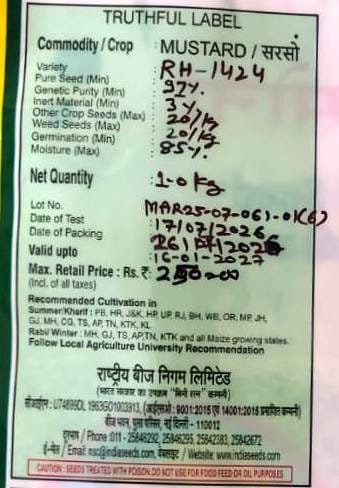 TRUTHFUL LABEL
Commodity / Crop : MUSTARD / सरसों
Variety : RH-1424
Pure Seed (Min) : 97%.
Genetic Purity (Min) :
Inert Material (Min) : 3%
Other Crop Seeds (Max) : 20/kg
Weed Seeds (Max) : 20/kg
Germination (Min) : 85%.
Moisture (Max) :
Net Quantity : 1.0 kg
Lot No. MAR25-07-061-01(6)
Date of Test : 17/07/2026
Date of Packing
Valid upto : 16-01-2027
Max. Retail Price : Rs. ₹:
(Incl. of all taxes)
Recommended Cultivation in
Summer/Kharif : PB, HR, J&K, HP, UP, RJ, BH, WB, OR, MP, JH,
GJ, MH, CG, TS, AP, TN, KTK, KL
Rabi/ Winter : MH, GJ, TS, AP,TN, KTK and all Maize growing states.
Follow Local Agriculture University Recommendation
राष्ट्रीय बीज निगम लिमिटेड
(भारत सरकार का उपक्रम "मिनी रत्न" कम्पनी)
सीआईएन : U74899DL 1963GO1003913, (आईएसओ : 9001:2015 एवं 14001:2015 प्रमाणित कम्पनी)
बीज भवन, पूसा परिसर, नई दिल्ली - 110012
दूरभाष / Phone :011 - 25846292, 25846295, 25842383, 25842672
ई-मेल / Email :nsc@indiaseeds.com, वेबसाइट / Website: www.indiaseeds.com
CAUTION : SEEDS TREATED WITH POISON.DO NOT USE FOR FOOD FEED OR OIL PURPOSES